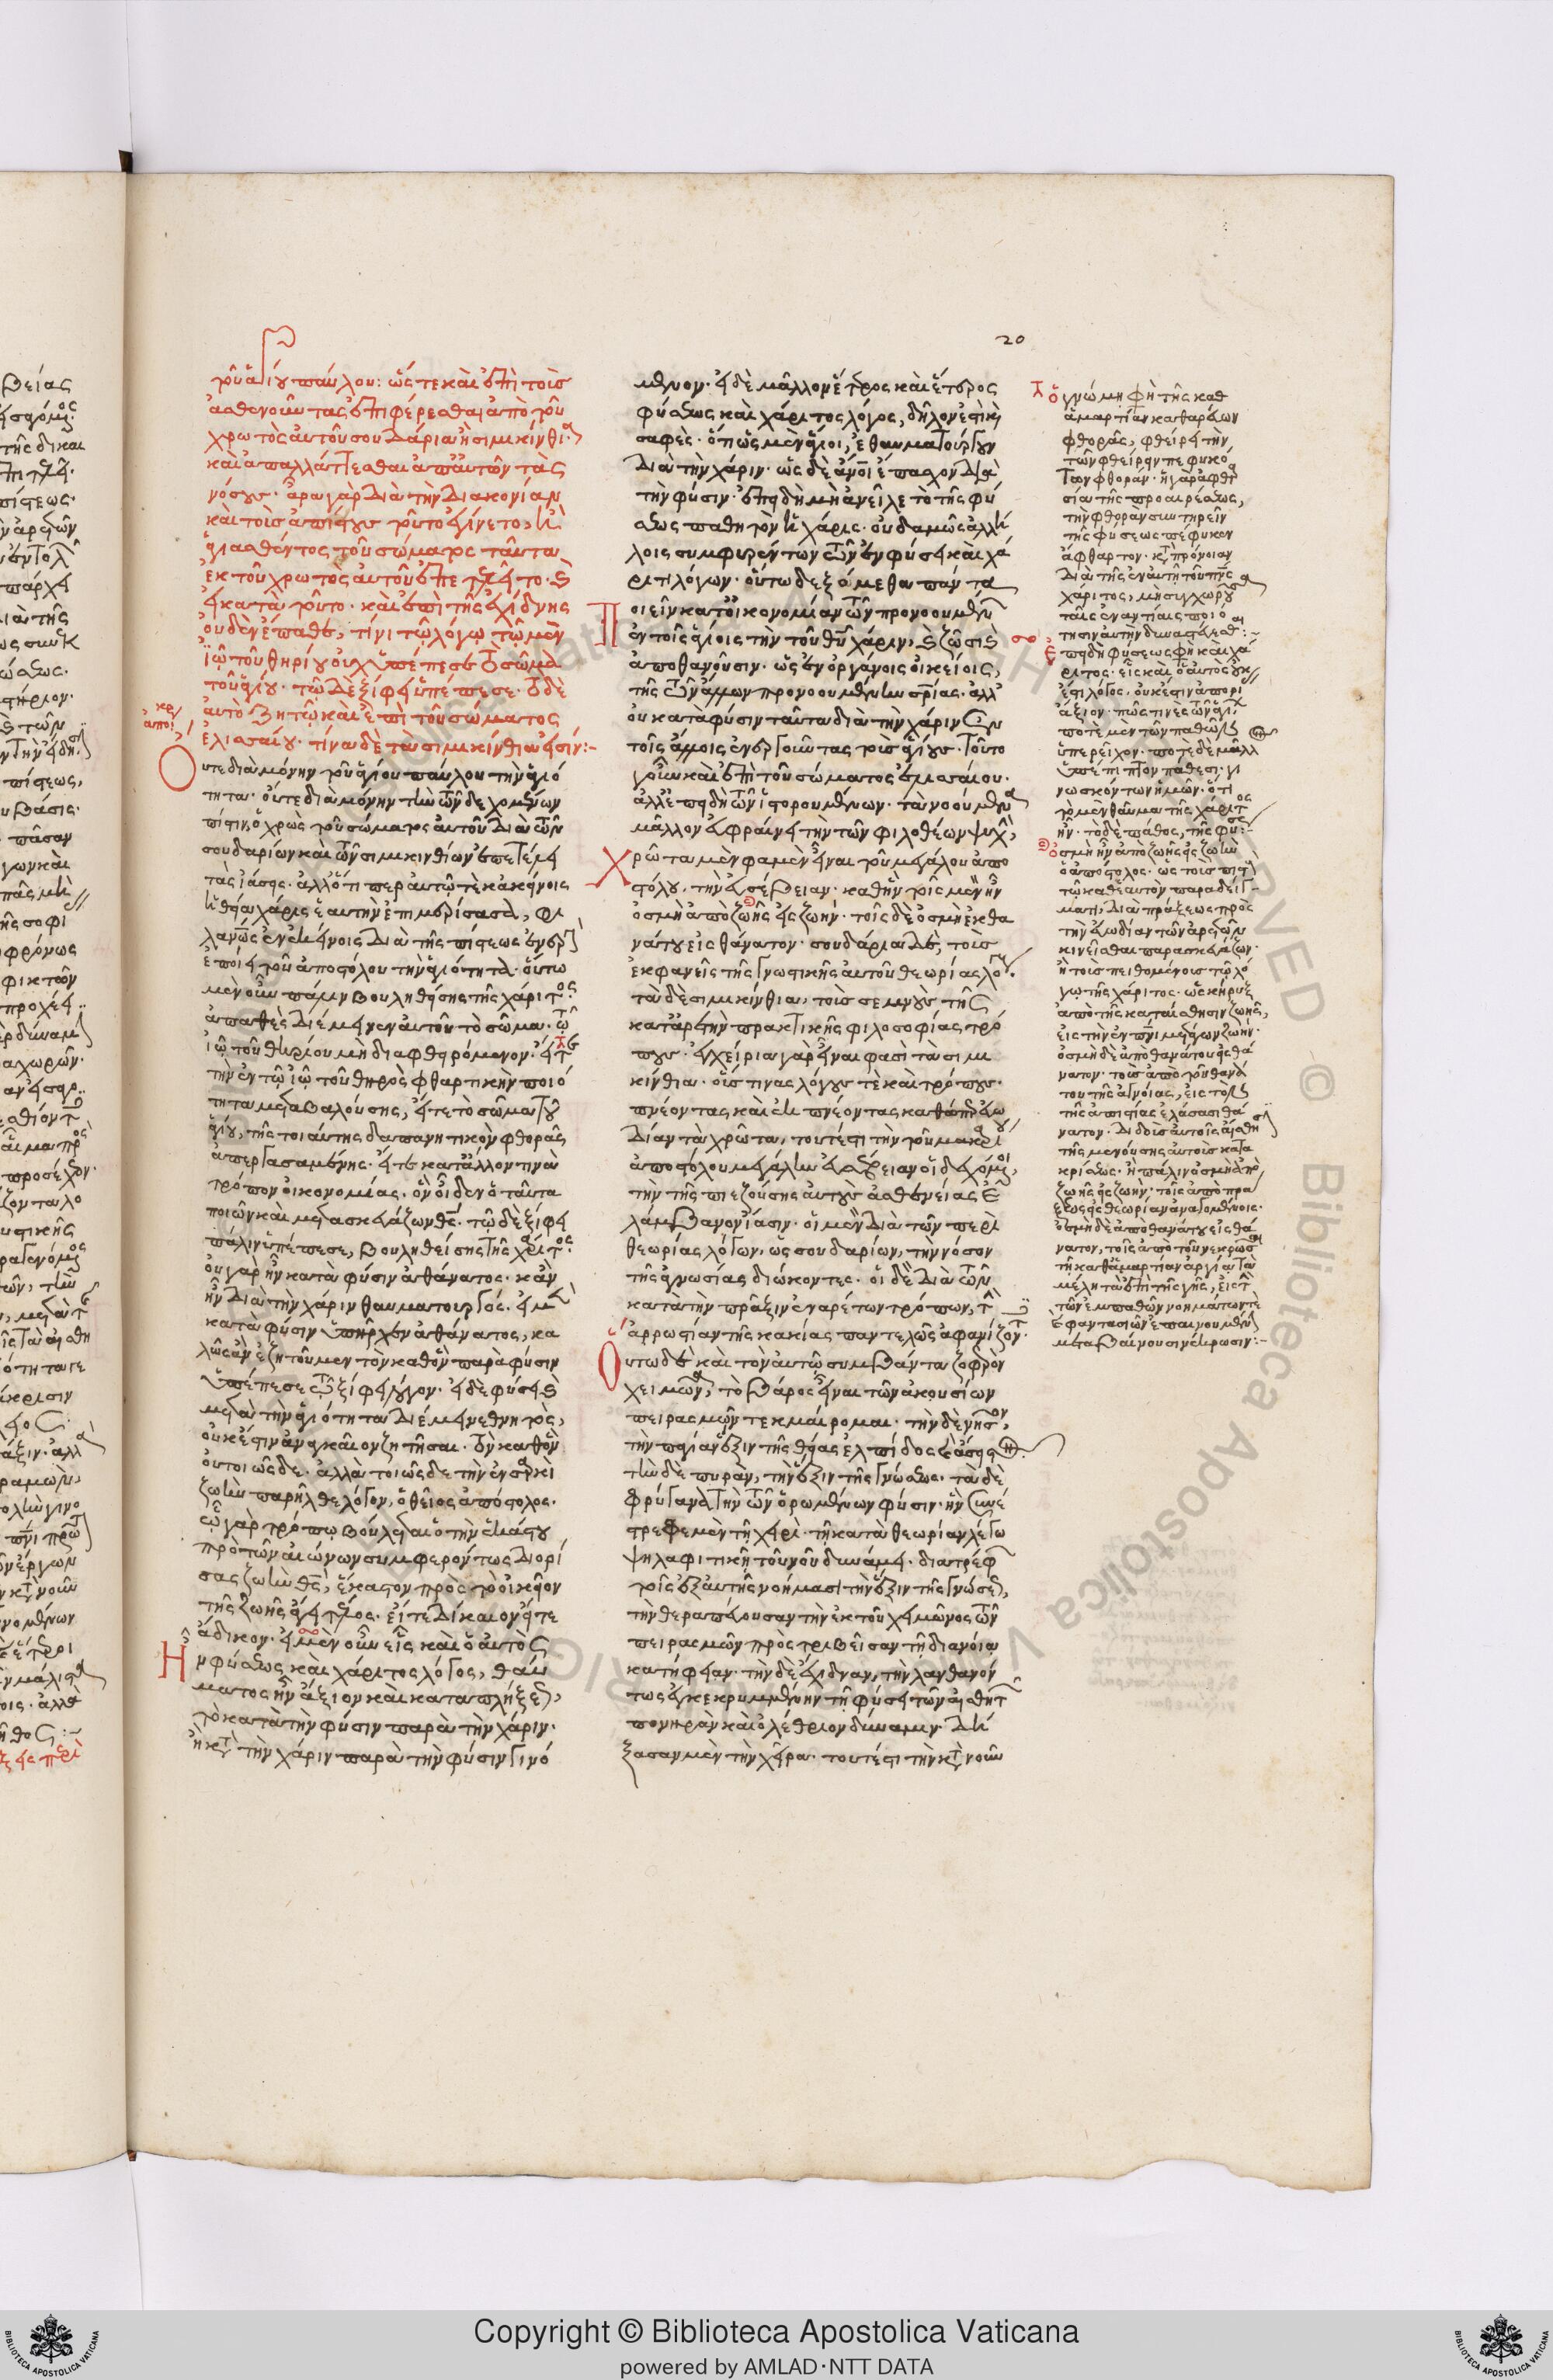 20
τοῦ ἁγίου παύλου: ὥστε καὶ ἐπὶ τοὺς
ἀσθενοῦντας ἐπιφέρεσθαι ἀπὸ τοῦ
χρωτὸς αὐτοῦ σουδάρια ἢ σιμικίνθια
καὶ ἀπαλλάττεσθαι ἀπ' αὐτῶν τὰς
νόσους· ἆρα γὰρ διὰ τὴν διακονίαν
καὶ τοὺς ἀπίστους τοῦτο ἐγίνετο, ἢ
ἁγιασθέντος τοῦ σώματος ταῦτα
ἐκ τοῦ χρωτὸς αὐτοῦ ἐπετελεῖτο· καὶ
εἰ κατὰ τοῦτο· καὶ ἐπὶ τῆς ἐχίδνης
οὐδὲν ἔπαθε, τίνι τῷ λόγῳ τῷ μὲν
ἰῷ τοῦ θηρίου οὐχ ὑπέπεσε τὸ σῶμα
τοῦ ἁγίου· τῷ δὲ ξίφει ὑπέπεσε· τὸ δὲ
αὐτὸ ζητῶ καὶ ἐπὶ τοῦ σώματος
ἐλισαίου· τίνα δὲ τὰ σιμικίνθια εἰσίν:-
Οὔτε διὰ μόνην τοῦ ἁγίου παύλου τὴν ἁγιό
τητα· οὔτε διὰ μόνην τὴν τῶν δεχομένων
πίστιν, ὁ χρὼς τοῦ σώματος αὐτοῦ διὰ τῶν
σουδαρίων καὶ τῶν σιμικινθίων ἐπετέλει
τὰς ἰάσεις· ἀλλ' ὅτι περ αὐτῷ τε κἀκείνοις
ἡ θεία χάρις ἑαυτὴν ἐπιμερίσασα, φι
λαν̅ως ἐν ἐκείνοις διὰ τῆς πίστεως ἐνεργ
ἐποίει τοῦ ἀποστόλου τὴν ἁγιότητα· οὕτω
μὲν οὖν πάλιν βουληθείσης τῆς χάριτος·
ἀπαθὲς διέμεινεν αὐτοῦ τὸ σῶμα· τῷ
ἰῷ τοῦ θηρίου μὴ διαφθειρόμενον· εἴτε
τὴν ἐν τῷ ἰῷ τοῦ θηρὸς φθαρτικὴν ποιό
τητα μεταβαλούσης, εἴτε τὸ σῶμα τοῦ
ἁγίου, τῆς τοιαύτης δαπανητικὸν φθορᾶς
ἀπεργασαμένης· εἴτε κατ' ἄλλον τινὰ
τρόπον οἰκονομίας· ὃν οἶδεν ὁ ταῦτα
ποιῶν καὶ μετασκευάζων θς̅· τῷ δὲ ξίφει
πάλιν ὑπέπεσε, βουληθείσης τῆς χάριτος·
οὐ γὰρ ἦν κατὰ φύσιν ἀθάνατος· κἂν
ἦν διὰ τὴν χάριν θαυματουργός· εἰ μὲν
κατὰ φύσιν ὑπῆρχεν ἀθάνατος, κα
λῶς ἂν ἐζητοῦμεν τὸν καθ' ὃν παρὰ φύσιν
ὑπέπεσε τῷ ξίφει λόγον· εἰ δὲ φύσει καὶ
μετὰ τὴν ἁγιότητα διέμεινε θνητὸς,
οὐκέτιν ἀναγκαῖον ζητῆσαι· τὸν καθ' ὃν
οὕτοι ὧς δε· ἀλλὰ τοιῶς δε τὴν ἐν σαρκὶ
ζωὴν παρῆλθε λόγον, ὁ θεῖος ἀπόστολος·
ᾧ γὰρ τρόπῳ βούλεται ὁ τὴν ἑκάστου
πρὸ τῶν αἰώνων συμφερόντως διορί
σας ζωὴν θς̅, ἕκαστον πρὸς τὸ οἰκεῖον
τῆς ζωῆς ἄγει τέλος· εἴτε δίκαιον εἴτε
ἄδικον· εἰ μὲν οὖν εἷς καὶ ὁ αὐτὸς
ἦν φύσεως καὶ χάριτος λόγος, θαύ
ματος ἦν ἄξιον καὶ καταπλήξεως,
τὸ κατὰ τὴν φύσιν παρὰ τὴν χάριν·
ἢ κατὰ τὴν χάριν παρὰ τὴν φύσιν γινό
μενον· εἰ δὲ μᾶλλον ἕτερος καὶ ἕτερος
φύσεως καὶ χάριτος λόγος, δῆλον ἐστὶ καὶ
σαφὲς· ὅτι ὡς μὲν ἅγιοι, ἐθαυματούργουν
διὰ τὴν χάριν· ὡς δὲ ἄνο̅ι ἔπασχον διὰ
τὴν φύσιν· ἐπειδὴ μὴ ἀνεῖλε τὸ τῆς φύ
σεως παθητὸν ἡ χάρις· οὐδαμῶς ἀλλή
λοις συμφυρέντων τῶν ἐν φύσει καὶ χά
ριτι λόγων· οὕτω δεξώμεθα πάντα
ποιεῖν κατ' οἰκονομίαν τῶν προνοουμένων
ἐν τοῖς ἁγίοις τὴν τοῦ θυ̅ χάριν, καὶ ζῶσι καὶ
ἀποθανοῦσιν· ὡς ἐν ὀργάνοις οἰκείοις,
τῆς τῶν ἄλλων προνοουμένην σρ̅ίας· ἀλλ'
οὐ κατὰ φύσιν ταῦτα διὰ τὴν χάριν ἐν
τοῖς ἄλλοις ἐνεργοῦντας τοὺς ἁγίους· τοῦτο
γοῦν καὶ ἐπὶ τοῦ σώματος ἐλισσαίου·
ἀλλ' ἐπειδὴ τῶν ἱστορουμένων· τὰ νοούμενα
μᾶλλον εὐφραίνει τὴν τῶν φιλοθέων ψυχὴν,
Χρῶτα μὲν φαμὲν εἶναι τοῦ μεγάλου ἀπο
στόλου, τὴν εὐσέβειαν· καθ' ἣν τοῖς μὲν ἦν
ὀσμὴ ἀπὸ ζωῆς εἰς ζωήν· τοῖς δὲ ὀσμὴ ἐκ θα
νάτου εἰς θάνατον· σουδάρια δὲ, τοὺς
ἐκφανεῖς τῆς γνωστικῆς αὐτοῦ θεωρίας λόγους·
τὰ δὲ σιμικίνθια, τοὺς σεμνοὺς τῆς
κατ' ἀρετὴν πρακτικῆς φιλοσοφίας τρό
πους· ἐγχείρια γὰρ εἶναι φασὶ τὰ σιμι
κίνθια· οὕς τινας λόγους τὲ καὶ τρόπους·
πνέοντας, καὶ ἐκπνέοντας καθάπερ εὐω
δίαν τὰ χρῶτα, τουτέστι τὴν τοῦ μακαρίου
ἀποστόλου μεγάλην εὐσέβειαν οἱ δεχόμενοι,
τὴν τῆς πιεζούσης αὐτοὺς ἀσθενείας ἐ
λάμβανον ἴασιν· οἱ μὲν διὰ τῶν περὶ
θεωρίας λόγων, ὡς σουδαρίων, τὴν νόσον
τῆς ἀγνωσίας διώκοντες· οἱ δὲ διὰ τῶν
κατὰ τὴν πρᾶξιν ἐναρέτων τρόπων, τὴν
ἀρρωστίαν τῆς κακίας παντελῶς ἀφανίζοντες·
Οὕτω δὲ καὶ τὸν αὐτῷ συμβάντα ζοφερὸν
χειμῶνα, τὸ βάρος εἶναι τῶν ἀκουσίων
πειρασμῶν τεκμαίρομαι· τὴν δὲ νῆσον,
τὴν παγίαν ἕξιν τῆς θείας ἐλπίδος
τὴν δὲ πυρὰν, τὴν ἕξιν τῆς γνώσεως· τὰ δὲ
φρύγανα τὴν τῶν ὁρωμένων φύσιν· ἣν συνέ
στρεφε μὲν τῇ χειρὶ· τῇ κατὰ θεωρίαν λέγω
ψηλαφιτικῇ τοῦ νοῦ δυνάμει· διατρέφων
τοῖς ἐξ αὐτῆς νοήμασι τὴν ἕξιν τῆς γνώσεως,
τὴν θεραπεύουσαν τὴν ἐκ τοῦ χειμῶνος τῶν
πειρασμῶν προστριβεῖσαν τῇ διανοίᾳ
κατήφειαν· τὴν δὲ ἔχιδναν, τὴν λανθανόν
τως ἐγκεκρυμμένην τῇ φύσει τῶν αἰσθητῶν
πονηρὰν καὶ ὀλέθριον δύναμιν· δή
ξασαν μὲν τὴν χεῖρα· τουτέστι τὴν κατὰ νοῦν
ἁμαρτίαν καθαρεύων
φθορᾶς, φθείρει τὴν
τῶν φθείρειν πεφυκό
των φθοράν· ἡ γὰρ ἀφθαρ
σία τῆς προαιρέσεως,
τὴν φθορὰν συντηρεῖν
τῆς φύσεως πέφυκεν
ἄφθαρτον· κατὰ πρόνοιαν
διὰ τῆς ἐν αὐτῇ τοῦ πν̅ς
χάριτος, μὴ συγχωροῦσα
ταῖς ἐναντίαις ποιό
τησιν αὐτὴν δυναστεύεσθαι:-
ἐπειδὴ φύσεως φὴ καὶ χά
ριτος· εἷς καὶ ὁ αὐτὸς οὐκ
ἔστι λόγος· οὐκέτιν ἀπορί
ας ἄξιον· πῶς τινὲς τῶν ἁγίων
ποτὲ μὲν τῶν παθῶν
ὑπερεῖχον· ποτὲ δὲ μᾶλλον
ὑπέπιπτον πάθεσι· γι
νωσκόντων ἡμῶν· ὅτι
τὸ μὲν θαῦμα τῆς χάριτος
ἦν· τὸ δὲ πάθος, τῆς φύσεως:-
ὀσμὴ ἦν ἀπὸ ζωῆς εἰς ζωὴν
ὁ ἀπόστολος· ὡς τοὺς πιστοὺς
τῷ καθ' ἑαυτὸν παραδείγ
ματι, διὰ πράξεως πρὸς
τὴν εὐωδίαν τῶν ἀρετῶν
κινεῖσθαι παρασκευάζων·
ἢ τοὺς πειθομένους τῷ λό
γῳ τῆς χάριτος· ὡς κῆρυξ
ἀπὸ τῆς κατ' αἴσθησιν ζωῆς,
εἰς τὴν ἐν πν̅ι μετάγων ζωήν·
ὀσμὴ δὲ ἀπὸ θανάτου εἰς θά
νατον· τοὺς ἀπὸ τοῦ θανά
του τῆς ἀγνοίας, εἰς τὸν
τῆς ἀπιστίας ἐλάσασι θά
νατον· διδοὺς αὐτοῖς αἴσθησιν
τῆς μενούσης αὐτοὺς κατα
κρίσεως· ἢ πάλιν ὀσμὴ ἀπὸ
ζωῆς εἰς ζωὴν· τοῖς ἀπὸ πρά
ξεως εἰς θεωρίαν ἀναγομένοις·
ὀσμὴ δὲ ἀπὸ θανάτου εἰς θά
νατον, τοῖς ἀπὸ τοῦ νεκρῶσαι
τῇ καθ' ἁμαρτίαν ἀργίᾳ τὰ
μέλη τὰ ἐπὶ τῆς γῆς, εἰς τὴν
τῶν ἐμπαθῶν νοημάτων τὲ
καὶ φαντασιῶν ἐπαινουμένην
μεταβαίνουσι νέκρωσιν:-
Copyright © Biblioteca Apostolica Vaticana
powered by AMLAD·NTT DATA